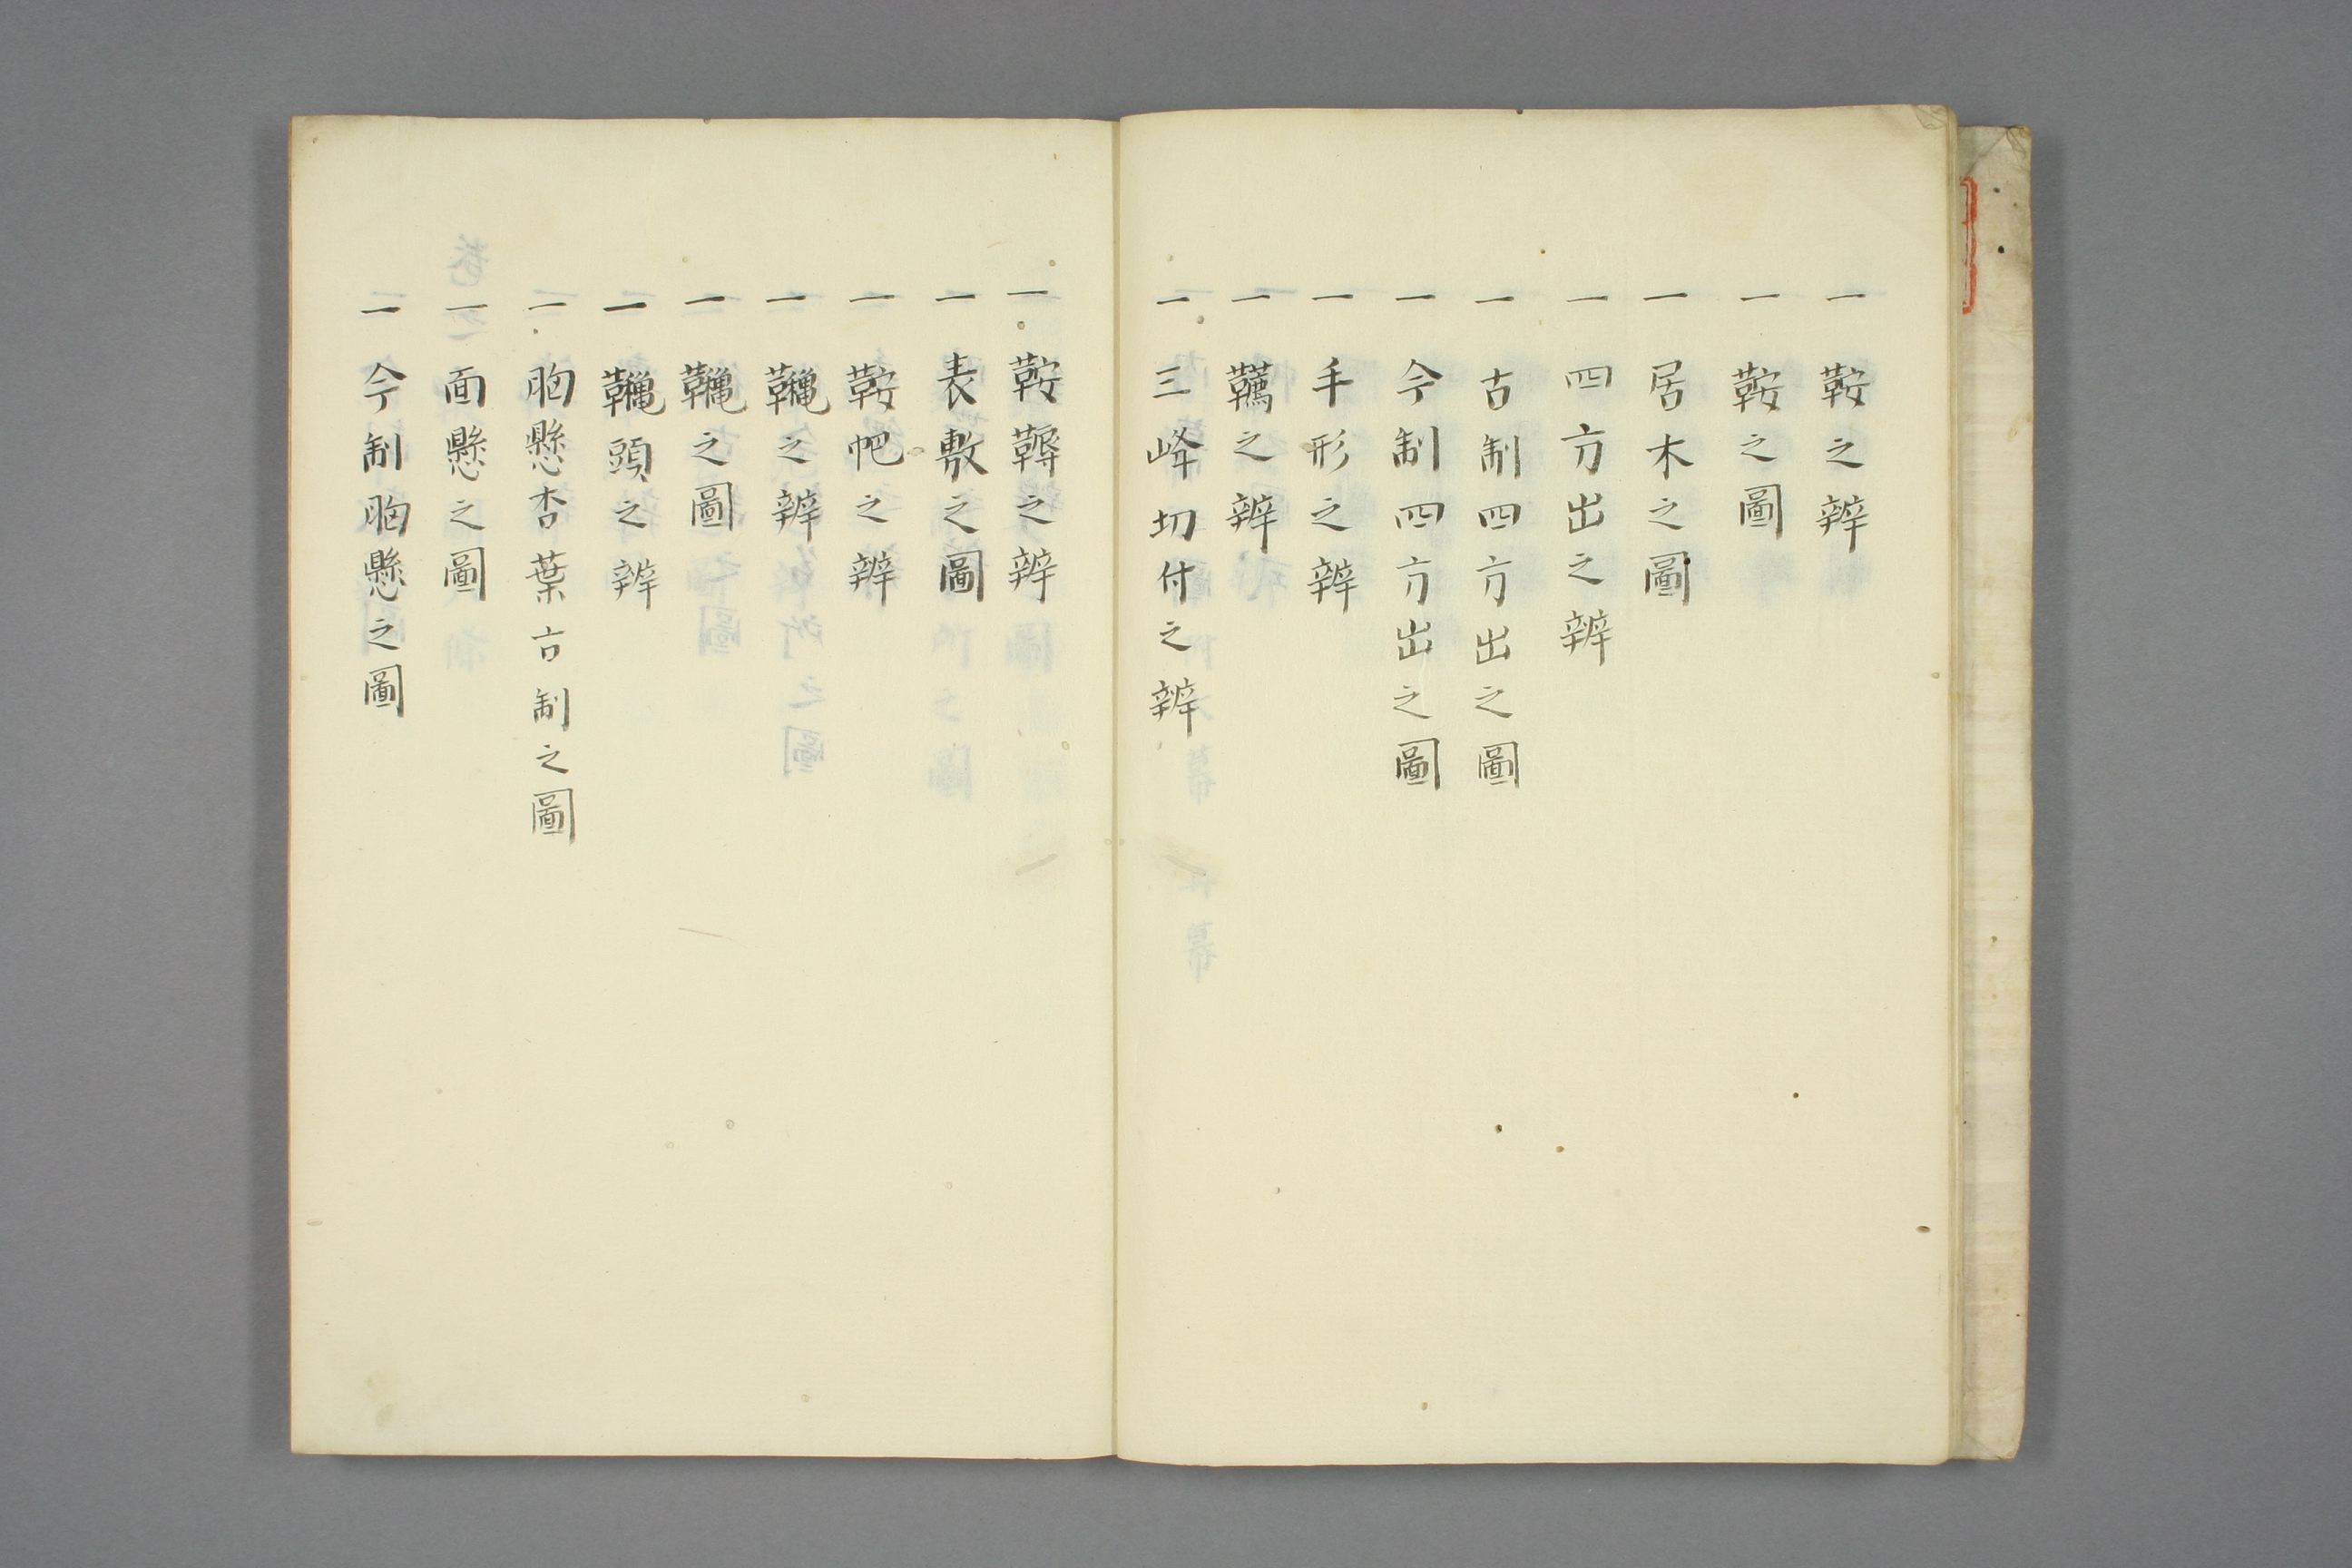 一 鞍之辨
一 鞍之圖
一 居木之圖
一 四方出之辨
一 古制四方出之圖
一 今制四方出之圖
一 手形之辨
一 韉之辨
一 三峰切付之辨
一 鞍鞯之辨
一 表敷之圖
一 鞍帊之辨
一 之辨
一 之圖
一 頭之辨
一 胸懸杏葉古制之圖
一 面懸之圖
一 今制胸懸之圖